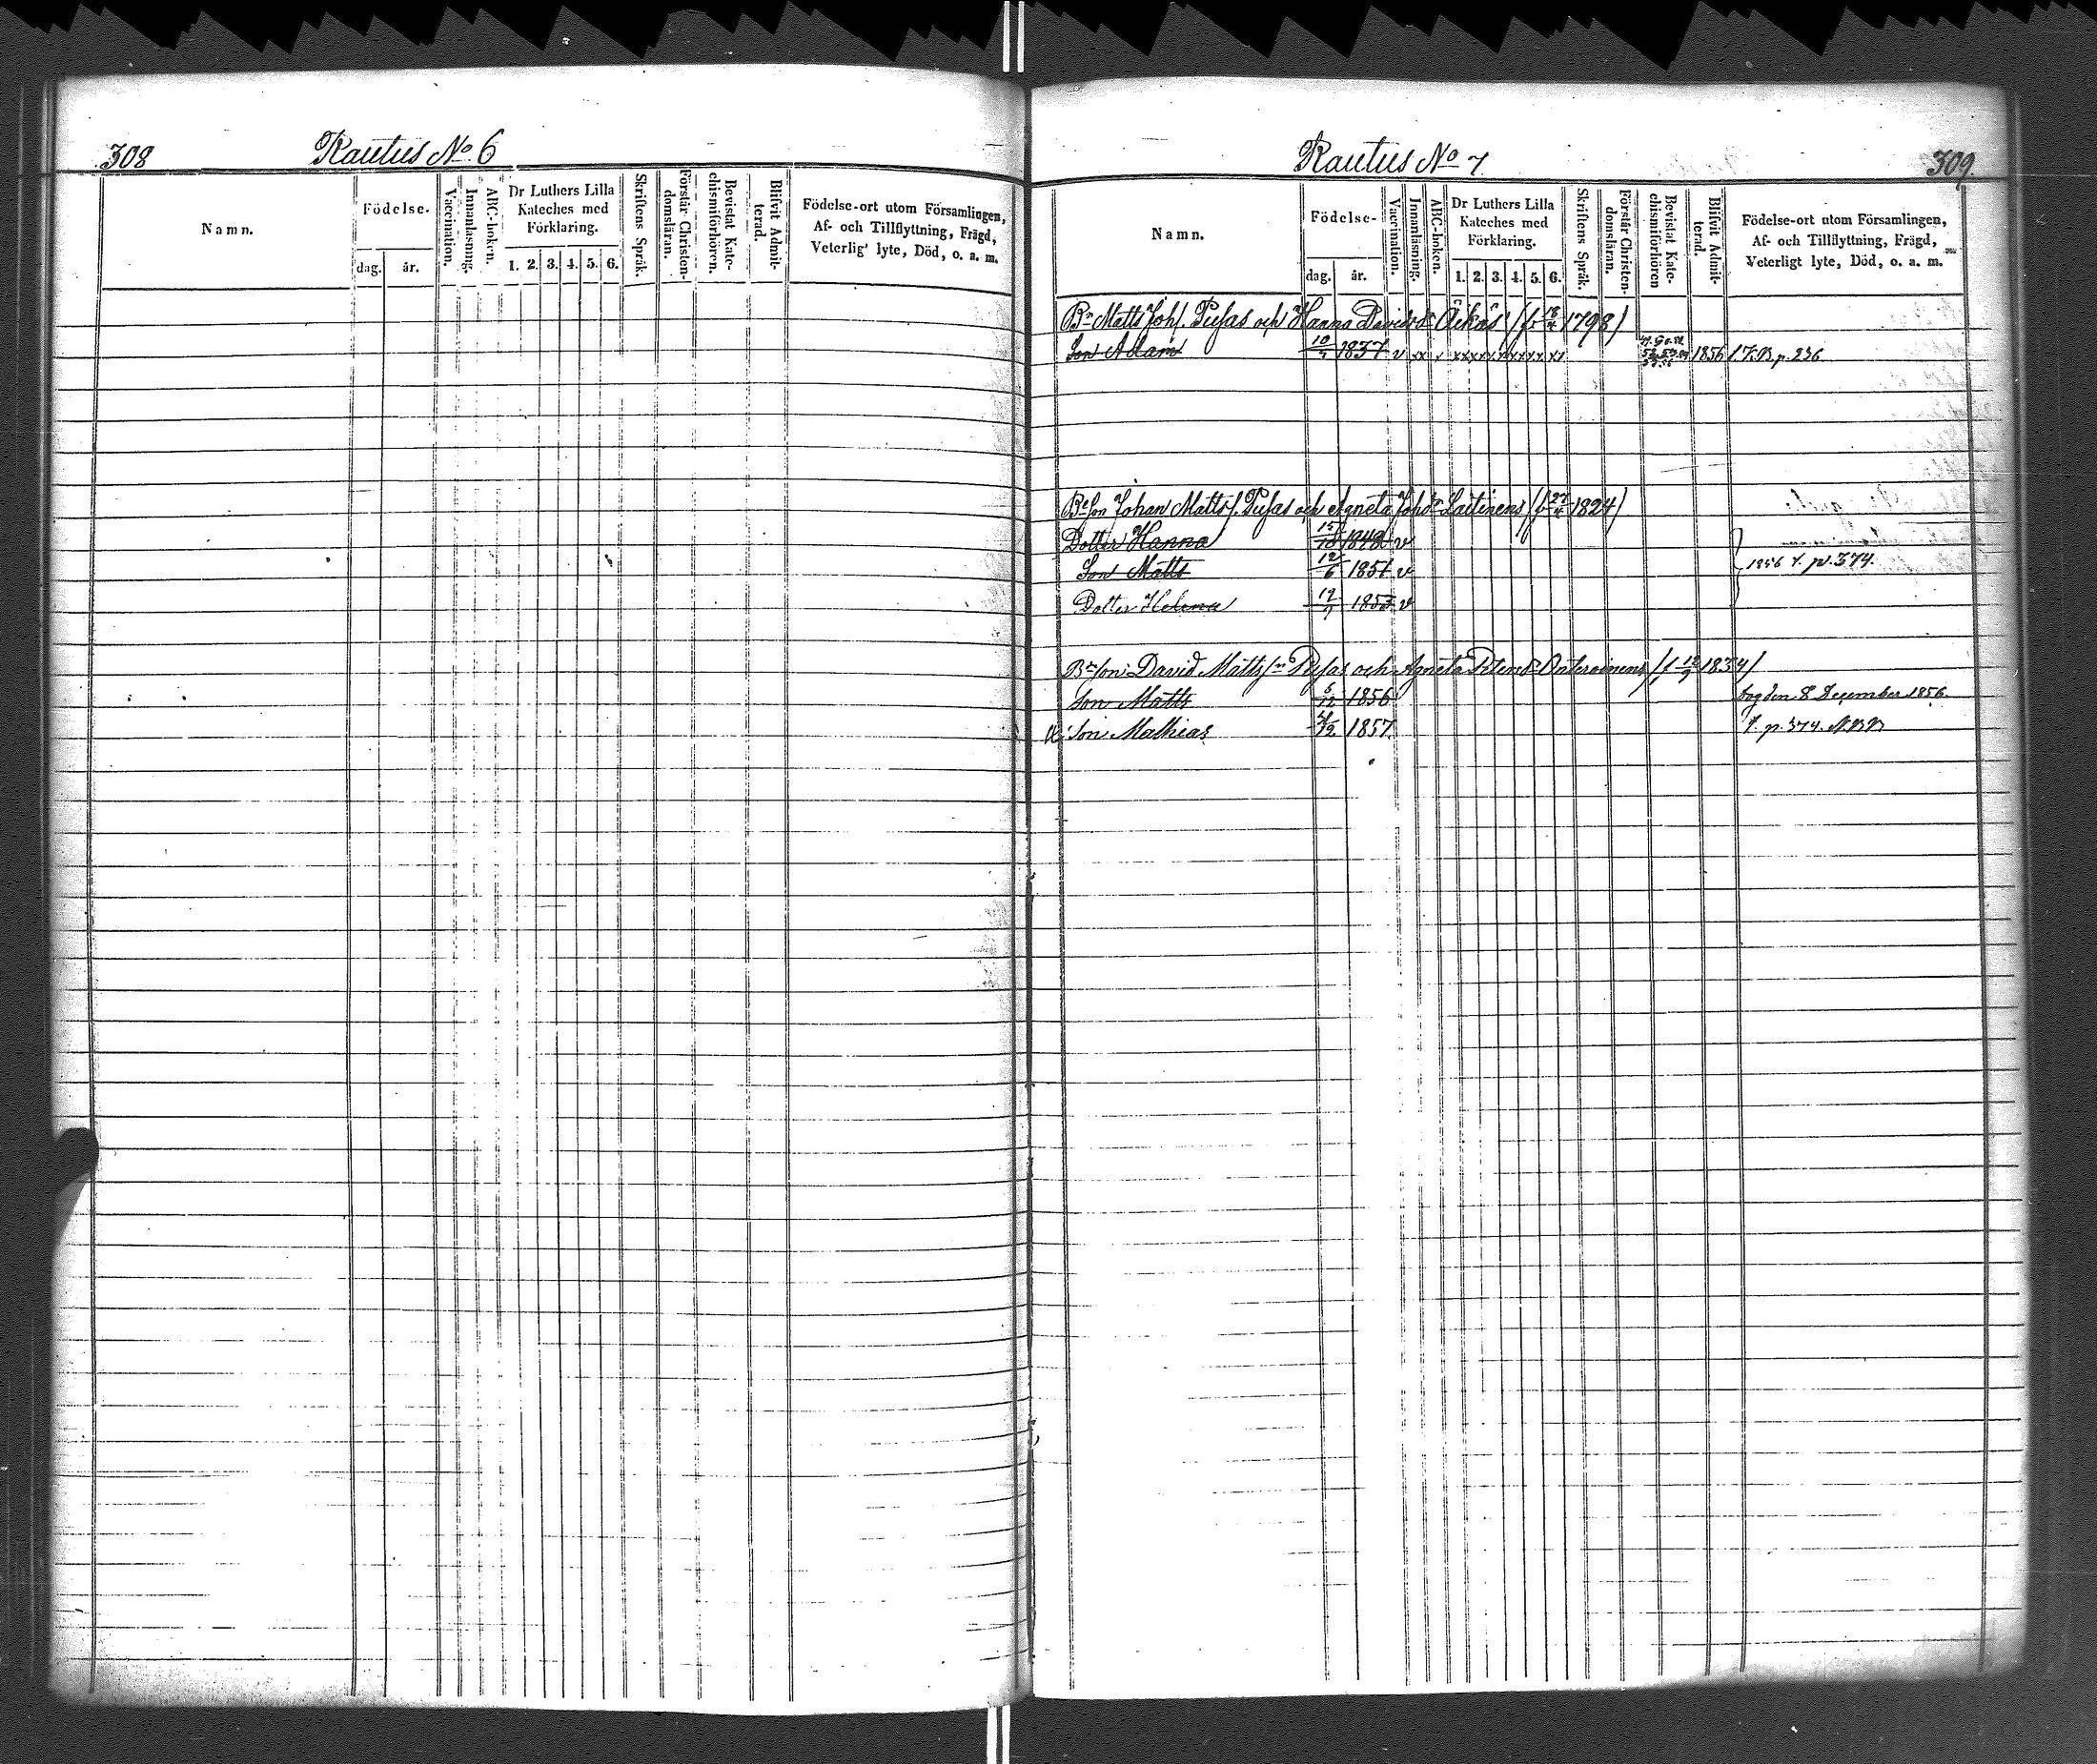 308
Rautus No 6
Namn.
Födelse-
dag. år.
Vaccination.
Innanläsning.
ABC-boken.
Dr Luthers Lilla
Kateches med
Förklaring.
1. 2. 3. 4. 5. 6.
Skriftens Språk.
Förstår Christen-
domsläran.
Bevistat Kate-
chismiförhören.
Blifvit Admit-
terad.
Födelse-ort utom Församlingen,
Af- och Tillflyttning, Frägd,
Veterlig' lyte, Död, o. a. m.
Rautus No 7.
309.
Namn.
Födelse-
dag. år.
Vaccination.
Innanläsning.
ABC-boken.
Dr Luthers Lilla
Kateches med
Förklaring.
1. 2. 3. 4. 5. 6.
Skriftens Språk.
Förstår Christen-
domsläran.
Bevistat Kate-
chismiförhören
Blifvit Admit-
terad.
Födelse-ort utom Församlingen,
Af- och Tillflyttning, Frägd,
Veterligt lyte, Död, o. a. m.
Bn Matts Johs. Pufas och Hanna Davidsdr Äikäs (f. 1798)
Son Adam 1837 v 1856 p. 236
Be Son Johan Matts s. Pufas och Agneta Johdr Lättinens (f 27/4 1824)
Dotter Hanna 15/10 1848 v
Son Matts 12/6 1851 v 1856 p. 374.
Dotter Helena 1853 v
Bn son David Matts sn Pufas och Agneta 1834)
Son Matts 1856 dog den 8 December 1856.
Son Mathias 1857. p. 374.